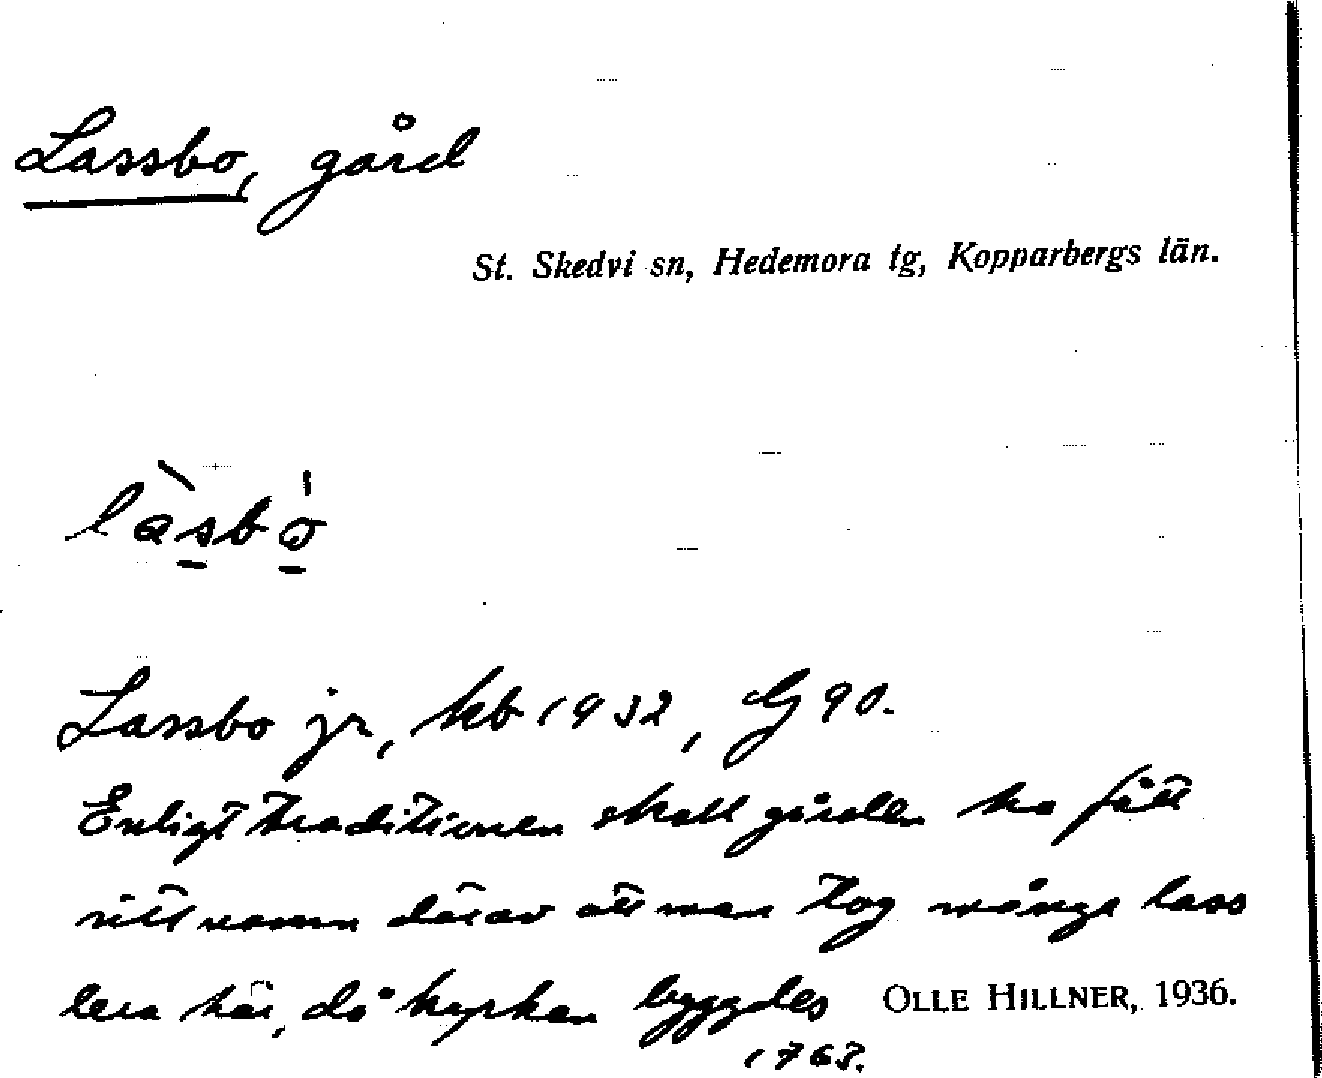 Lassbo, gård
St. Skedvi sn, Hedemora tg, Kopparbergs län.
làsbó
Lassbo jr, kb 1932, G 90.
Enligt traditionen skall gården ha fått
sitt namn därav att man tog många lass
lera här, då kyrkan byggdes OLLE HILLNER, 1936.
1767.